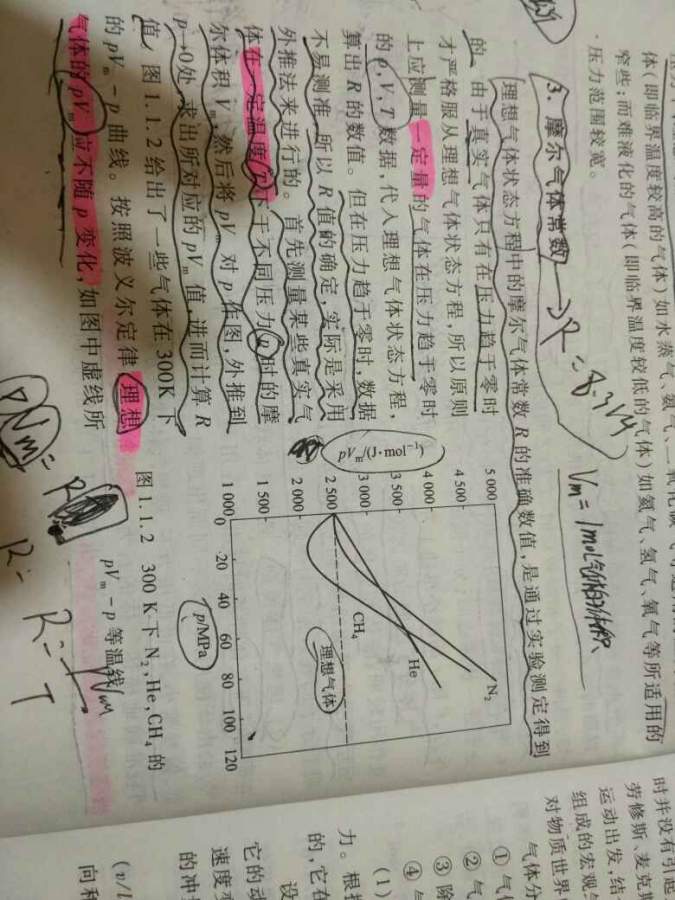 体(即临界温度较高的气体)如水蒸气、氨气、二氧化碳气
窄些;而难液化的气体(即临界温度较低的气体)如氦气、氢气、氧气等所适用的
压力范围较宽。
3. 摩尔气体常数 → R = 8.314
Vm = 1mol气体的体积
理想气体状态方程中的摩尔气体常数 R 的准确数值,是通过实验测定得到
的。由于真实气体只有在压力趋于零时
才严格服从理想气体状态方程,所以原则
上应测量一定量的气体在压力趋于零时
的 p,V,T 数据,代入理想气体状态方程,
算出 R 的数值。但在压力趋于零时,数据
不易测准,所以 R 值的确定,实际是采用
外推法来进行的。首先测量某些真实气
体在一定温度 T 下于不同压力 p 时的摩
尔体积 Vm,然后将 pVm 对 p 作图,外推到
p→0处,求出所对应的 pVm 值,进而计算 R
值。图 1.1.2 给出了一些气体在 300K 下
的 pVm - p 曲线。按照波义尔定律,理想
气体的 pVm 应不随 p 变化,如图中虚线所
pVm/(J·mol⁻¹)
5 000
4 500
4 000
3 500
3 000
2 500
2 000
1 500
1 000
N2
He
CH4
理想气体
0 20 40 60 80 100 120
p/MPa
图 1.1.2 300 K 下 N2,He,CH4 的
pVm - p 等温线
pVm = R
R =
R = pVm
T
时并没有引起
劳修斯、麦克斯
运动出发,结
组成的宏观
对物质世界
气体分
① 气体
② 气
③ 除
④ 气
(1)
力。根据
的,它在
设
它的动
速度变
的冲
(v/l
向和